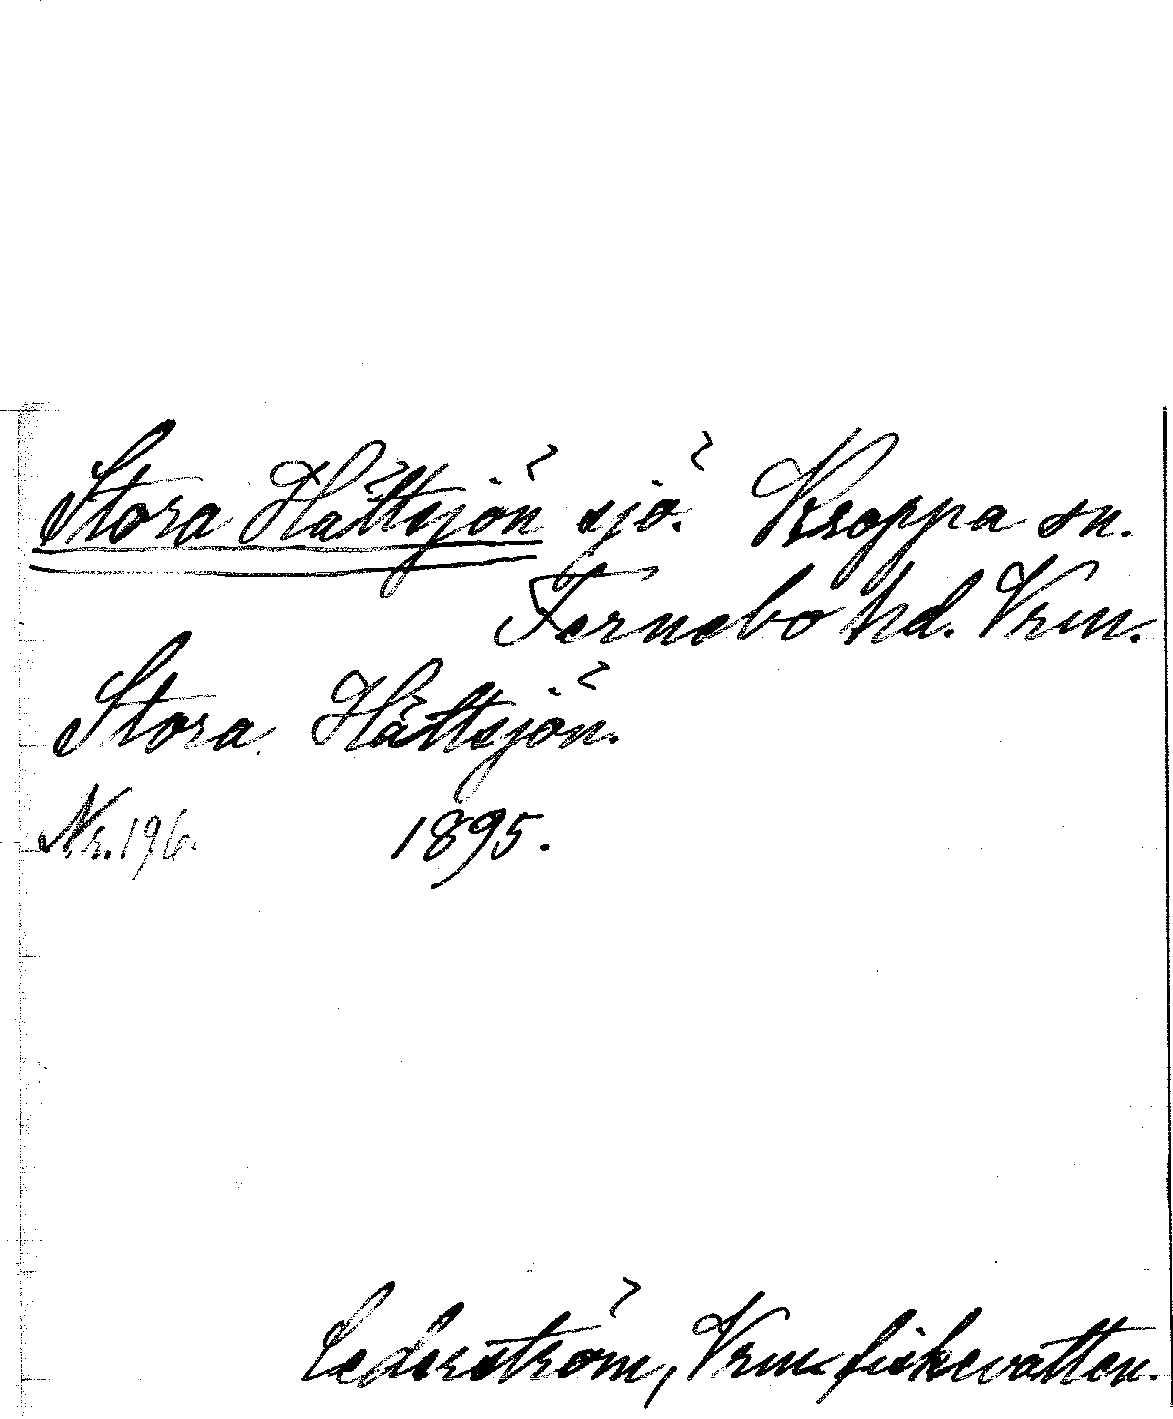 Stora Håttsjön sjö. Kroppa sn.
Fernebo hd. Vrm.
Stora Håttsjön.
Nr. 196. 1895.
Cederström, Vrm. fiskevatten.